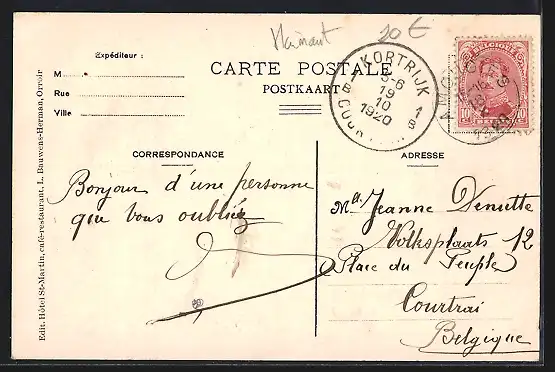 Hainaut 20 €
Expéditeur :
M
Rue
Ville
CARTE POSTALE
POSTKAART
KORTRIJK 1B
8-6
19
10
1920
COURTRAI 1B
BELGIQUE
10 10
CORRESPONDANCE
ADRESSE
Bonjour d'une personne
que vous oubliéz
Mlle Jeanne Denutte
Volksplaats 12
Place du Peuple
Courtrai
Belgique
Edit. Hôtel St-Martin, café-restaurant, L. Bauwens-Herman, Orroir